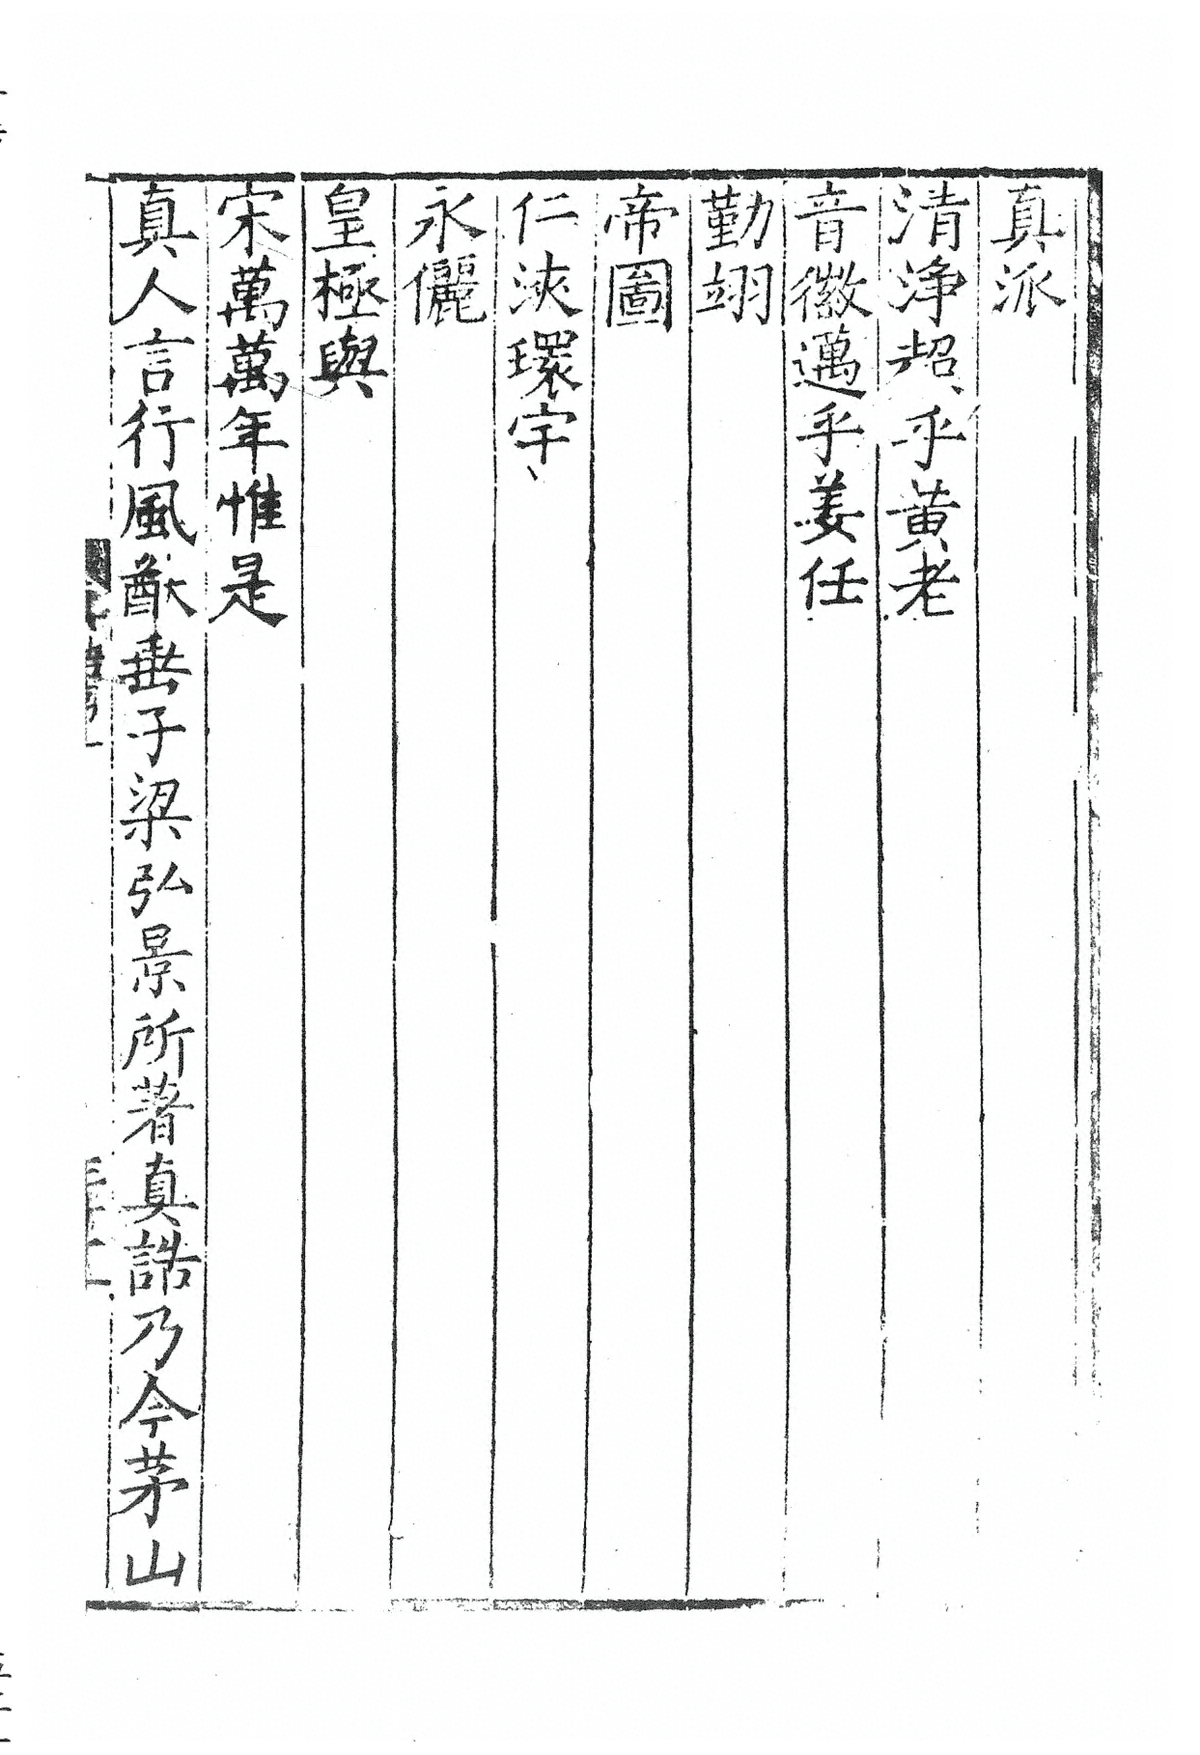 真派
清浄超乎黄老
音徽邁乎姜任
勤翊
帝圖
仁浹環宇
永儷
皇極與
宋萬萬年惟是
真人言行風猷垂子梁弘景所著真誥乃今茅山